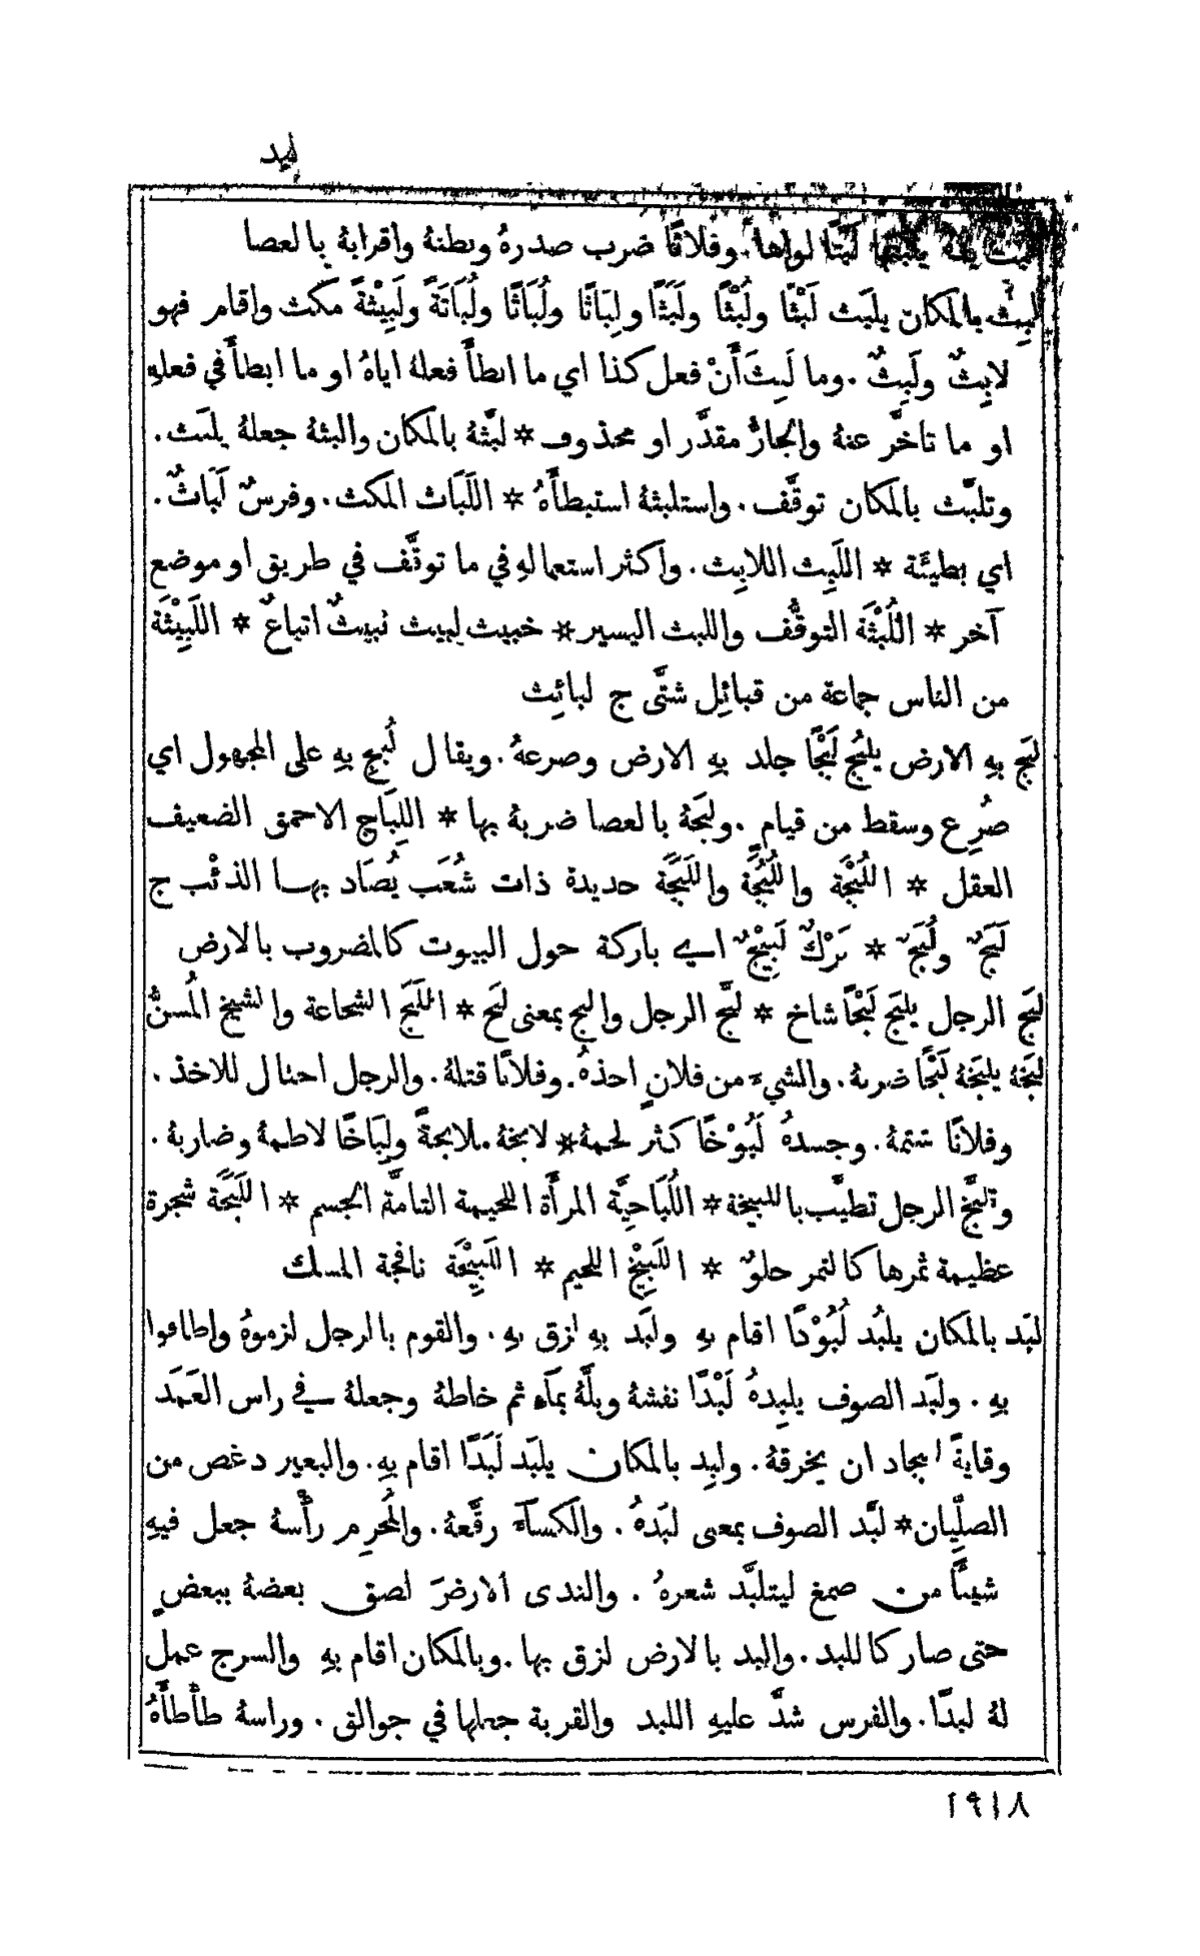 لبد
لَبْتًا لواها. وفلانًا ضرب صدرهُ وبطنهُ واقرابهُ بالعصا
لبِث بالمكان يلبَث لَبْثًا ولُبْثًا ولَبَثًا ولِبَاثًا ولُبَاثًا ولُبَاثَةً ولَبِيْثةً مكث واقام فهو
لابِثٌ ولَبِثٌ. وما لَبِثَ أَنْ فعل كذا اي ما ابطأَ فعلهُ اياهُ او ما ابطأَ في فعلهِ
او ما تأخَّر عنهُ والجارُّ مقدَّر او محذوف * لبَّثهُ بالمكان والبثهُ جعلهُ يلبث.
وتلبَّث بالمكان توقَّف. واستلبثهُ استبطأَهُ * اللَبَاث المكث. وفرسٌ لَبَاثٌ.
اي بطيئَة * اللَبِث اللابِث. واكثر استعمالهِ في ما توقَّف في طريق او موضع
آخر * اللُبْثَة التوقُّف واللبث اليسير * خبيث لبيث نبيثٌ اتباعٌ * اللَبِيْثَة
من الناس جماعة من قبائِل شتَّى ج لبائِث
لبَج بهِ الارض يلبُج لَبْجًا جلد بهِ الارض وصرعهُ. ويقال لُبج بهِ على المجهول اي
صُرِع وسقط من قيامٍ. ولبَجهُ بالعصا ضربهُ بها * اللِبَاج الاحمق الضعيف
العقل * اللُبْجَة واللُبُجَة واللَبَجَة حديدة ذات شُعَب يُصَاد بها الذئْب ج
لَبَجٌ ولُبَجٌ * بَرْكٌ لَبِيْجٌ اي باركة حول البيوت كالمضروب بالارض
لبَح الرجل يلبَح لَبْحًا شاخ * لبَّح الرجل والبح بمعنى لبَح * اللَبَح الشجاعة والشيخ المُسنُّ
لبَخهُ يلبَخهُ لَبْخًا ضربهُ. والشيءَ من فلانٍ اخذهُ. وفلانًا قتلهُ. والرجل احتال للاخذ.
وفلانًا شتمهُ. وجسدهُ لَبُوْخًا كثر لحمهُ * لابخهُ ملابخةً ولِبَاخًا لاطمهُ وضاربهُ.
وتلبَّخ الرجل تطيَّب باللبيخة * اللُبَاخِيَّة المرأَة اللحيمة التامَّة الجسم * اللَبَخَة شجرة
عظيمة ثمرها كالتمر حلوٌ * اللَبِيْخ اللحيم * اللَبِيْخَة نافجة المسك
لبَد بالمكان يلبُد لُبُوْدًا اقام بهِ ولبَد بهِ لزق بهِ. والقوم بالرجل لزموهُ واطافوا
بهِ. ولبَد الصوف يلبِدهُ لَبْدًا نفشهُ وبلَّهُ بمآءٍ ثم خاطهُ وجعلهُ في راس العَمَد
وقايةً للبجاد ان يخرقهُ. ولبِد بالمكان يلبَد لَبَدًا اقام بهِ. والبعير دغص من
الصلِّيان * لبَّد الصوف بمعنى لبَدهُ. والكسآءَ رقَّعهُ. والمُحرِم رأْسهُ جعل فيهِ
شيئًا من صمغ ليتلبَّد شعرهُ. والندى الارضَ لصق بعضهُ ببعضٍ
حتى صار كاللبد. والبد بالارض لزق بها. وبالمكان اقام بهِ والسرج عمل
لهُ لبدًا. والفرس شدَّ عليهِ اللبد والقربة جعلها في جوالق. وراسهُ طأْطأَهُ
١٩١٨